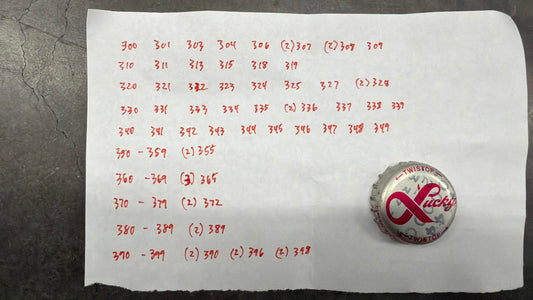 300 301 303 304 306 (2)307 (2)308 309
310 311 313 315 318 319
320 321 322 323 324 325 327 (2)328
330 331 333 334 335 (2)336 337 338 339
340 341 342 343 344 345 346 347 348 349
350 - 359 (2)355
360 - 369 (3)365
370 - 379 (2)372
380 - 389 (2)389
390 - 399 (2)390 (2)396 (2)398
TWISTOP
Lucky
TWISTOP